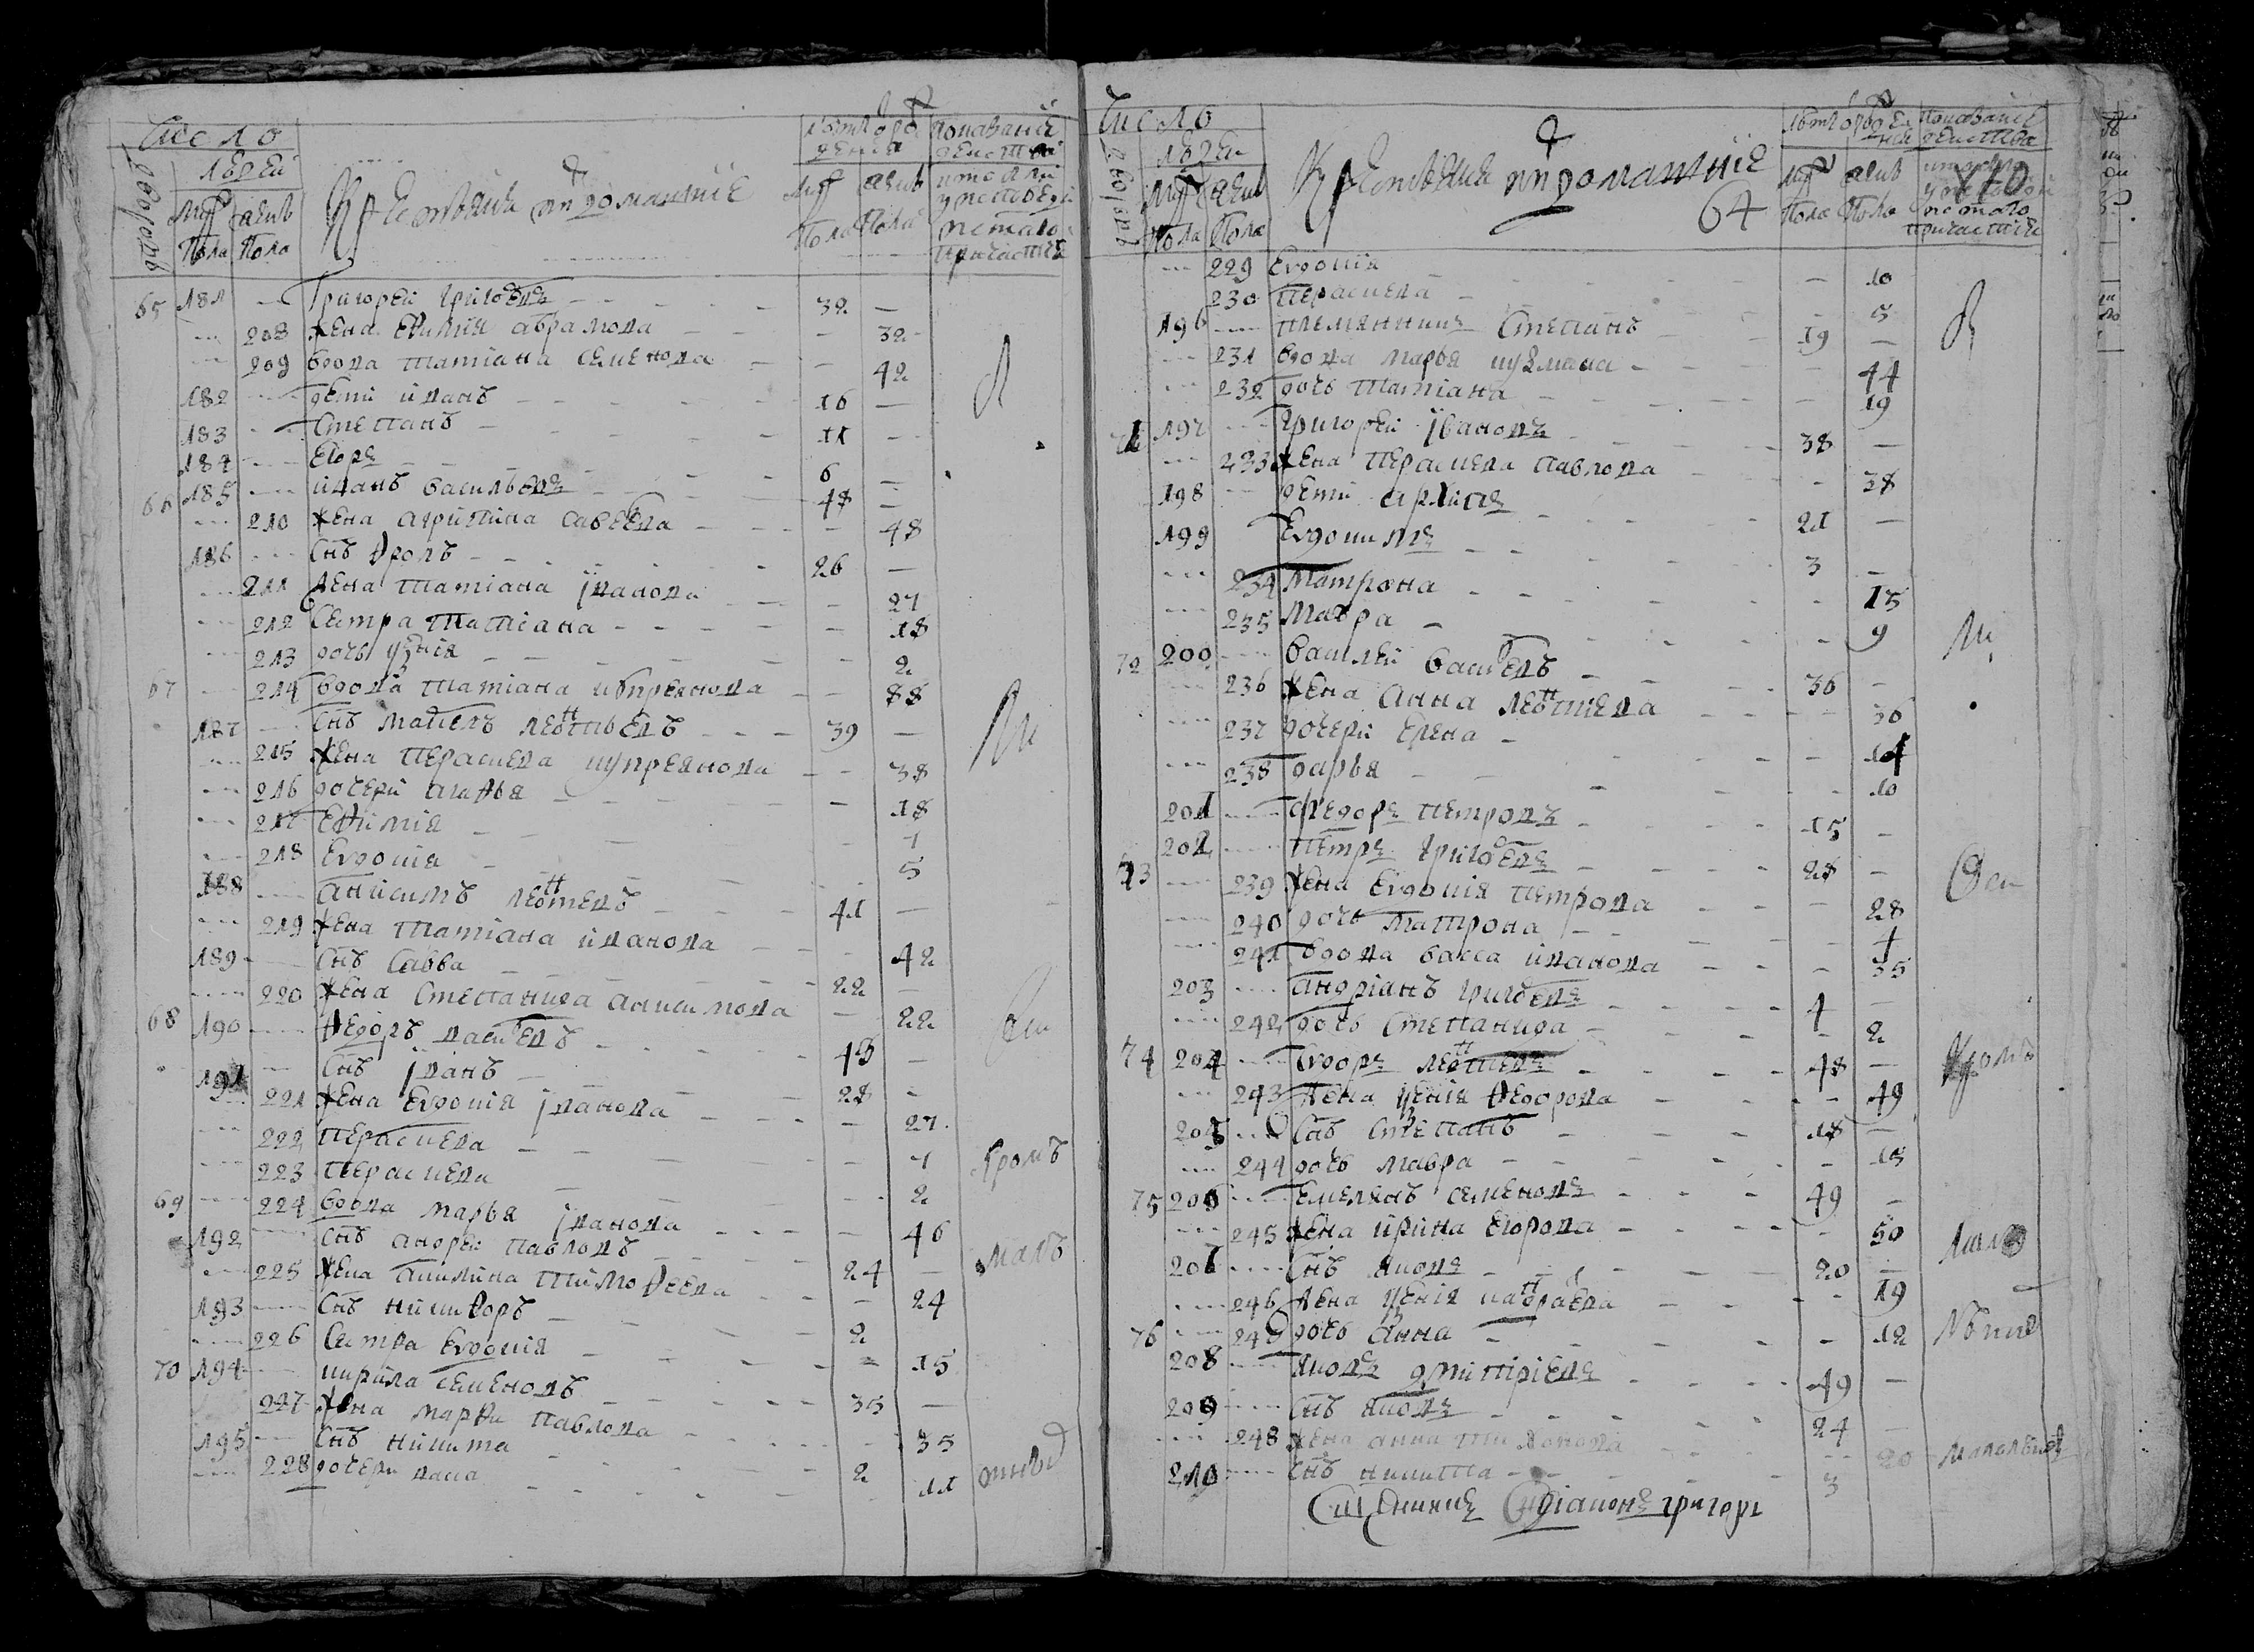 Число
людей
дворовъ
муж женск
пола пола
Крестьяня и их домашние
лѣтъ от рож
дения
муж женск
пола пола
показание
действа
кто были
у исповеди
и святаго
причастия
65 181 --- Григорей Григоревъ --- 32 —
--- 208 жена Евфимия Абрамова — 32
--- 209 вдова Татиана Семенова — 42
182 --- дети Иванъ 16 —
183 --- Степанъ 11 —
184 --- Егоръ 6 —
66 185 --- Иванъ Васильевъ 48 —
--- 210 жена Агрипина Савеева — 48
186 --- снъ Фролъ 26 —
--- 211 жена Татиана Iванова — 27
--- 212 сестра Татиана — 18
--- 213 дочь — 2
67 --- 214 вдова Татиана Купреянова — 88
187 --- снъ Матвеъ Леонтьевъ 39 —
--- 215 жена Пераскева Купреянова — 38
--- 216 дочери Агафья — 18
--- 217 Ефимия — 7
--- 218 Евдокия — 5
188 --- Анисимъ Леонтевъ 41 —
--- 219 жена Татиана Иванова — 42
189 --- снъ Савва 22 —
--- 220 жена Степанида Анисимова — 22
68 190 --- Федоръ Васиевъ 43 —
191 --- снъ Iванъ 28 —
--- 221 жена Евдокия Iванова — 27
--- 222 Пераскева — 7
--- 223 Пераскева — 2
69 --- 224 вдова Марья Iванова — 46
192 --- снъ Андрей Павловъ 24 —
--- 225 жена Акилина Тимофеева — 24
193 --- снъ Никифоръ 2
--- 226 сестра Евдокия — 15
70 194 --- Кирила Семеновъ 35 —
--- 227 жена Марфа Павлова — 35
195 --- снъ Никита 2
--- 228 дочери Васа — 11
кромъ
малъ
Число
людей
дворовъ
муж женск
пола пола
Крестьяня и их домашние
64
лѣтъ от рожде
ния
муж женск
пола пола
показание
действа
110
святаго
причастия
--- 229 Евдокия — 10
230 Пераскева — 5
196 --- племянникъ Степанъ 19 —
--- 231 вдова Марья Кузмина — 44
--- 232 дочь Татиана — 19
71 197 --- Григорей Iвановъ 38 —
--- 233 жена Пераскева Павлова — 38
198 --- дети Архипъ 21 —
199 Евдокимъ 3 —
--- 234 Матрона — 15
--- 235 Мавра — 9
72 200 --- Василей Васиевъ 36 —
--- 236 жена Анна Леонтиева — 30
--- 237 дочери Ерена — 14
--- 238 Дарья — 10
201 --- Федоръ Петровъ 15 —
202 --- Петръ Григоревъ 28 —
73 --- 239 жена Евдокия Петрова — 28
--- 240 дочь Матрона —
--- 241 вдова Васса Иванова — 55
203 --- Андрианъ Григоревъ 4 —
--- 242 дочь Степанида — 2
74 204 --- Сидоръ Леонтиевъ 48 —
--- 243 жена Ксения Федорова — 49
205 --- снъ Степанъ 18 —
--- 244 дочь Мавра — 15
75 206 --- Емелянъ Семеновъ 49 —
--- 245 жена Ирина Егорова — 50
207 --- снъ Яковъ 20 —
--- 246 жена Ксения — 19
76 --- 247 дочь Анна — 12
208 --- Яковъ Дмитриевъ 49 —
209 --- снъ Яковъ 24 —
--- 248 жена Анна Тихонова — 20
210 --- снъ Никита 3
Священникъ Григоре